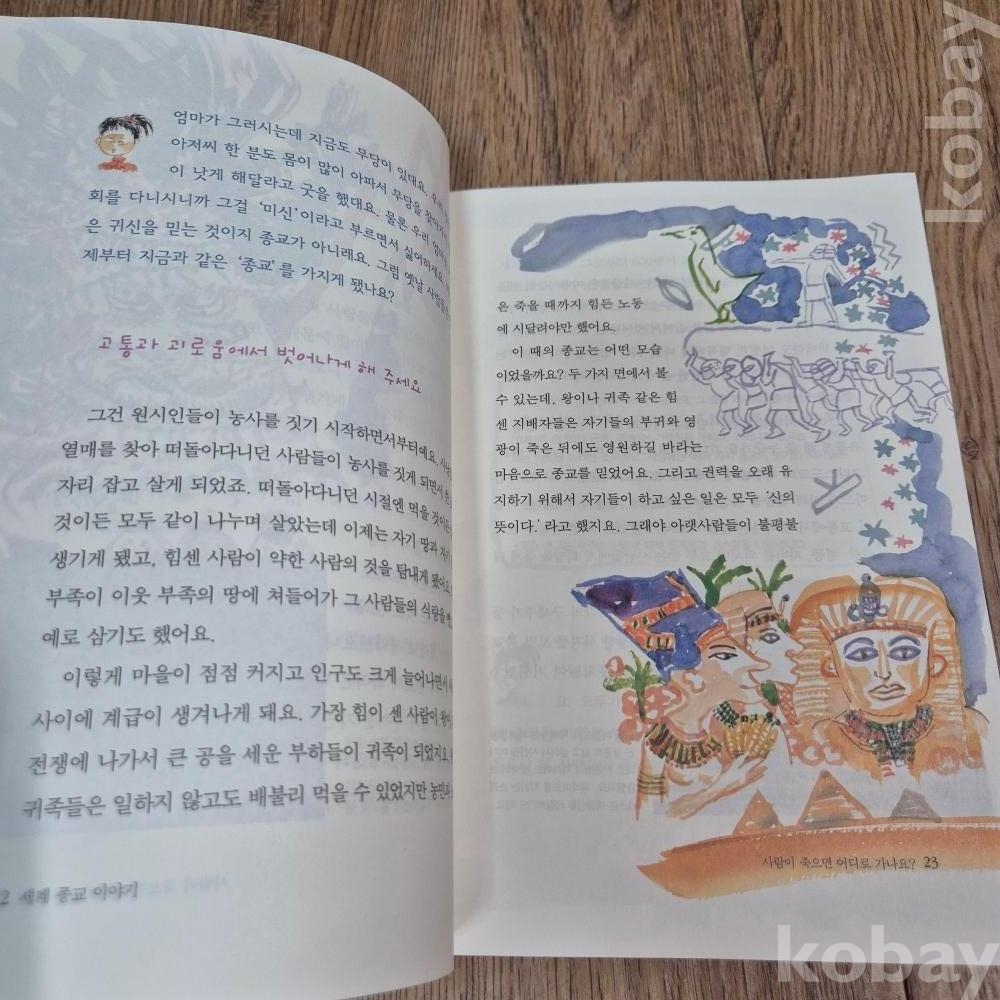 엄마가 그러시는데 지금도 무당이 있대요.
아저씨 한 분도 몸이 많이 아파서 무당을
이 낫게 해달라고 굿을 했대요. 물론 우리
회를 다니시니까 그걸 '미신'이라고 부르면서 싫어하세요.
은 귀신을 믿는 것이지 종교가 아니래요. 그럼 옛날
제부터 지금과 같은 '종교'를 가지게 됐나요?
고통과 괴로움에서 벗어나게 해 주세요
그건 원시인들이 농사를 짓기 시작하면서부터예요.
열매를 찾아 떠돌아다니던 사람들이 농사를 짓게 되면서
자리 잡고 살게 되었죠. 떠돌아다니던 시절엔 먹을 것이든
것이든 모두 같이 나누며 살았는데 이제는 자기 땅과
생기게 됐고, 힘센 사람이 약한 사람의 것을 탐내게 됐어요.
부족이 이웃 부족의 땅에 쳐들어가 그 사람들의 식량을
예로 삼기도 했어요.
이렇게 마을이 점점 커지고 인구도 크게 늘어나면서
사이에 계급이 생겨나게 돼요. 가장 힘이 센 사람이
전쟁에 나가서 큰 공을 세운 부하들이 귀족이 되었지요
귀족들은 일하지 않고도 배불리 먹을 수 있었지만
2 세계 종교 이야기
은 죽을 때까지 힘든 노동
에 시달려야만 했어요.
이 때의 종교는 어떤 모습
이었을까요? 두 가지 면에서 볼
수 있는데, 왕이나 귀족 같은 힘
센 지배자들은 자기들의 부귀와 영
광이 죽은 뒤에도 영원하길 바라는
마음으로 종교를 믿었어요. 그리고 권력을 오래 유
지하기 위해서 자기들이 하고 싶은 일은 모두 '신의
뜻이다.'라고 했지요. 그래야 아랫사람들이 불평불
사람이 죽으면 어디로 가나요? 23
kobay
kobay